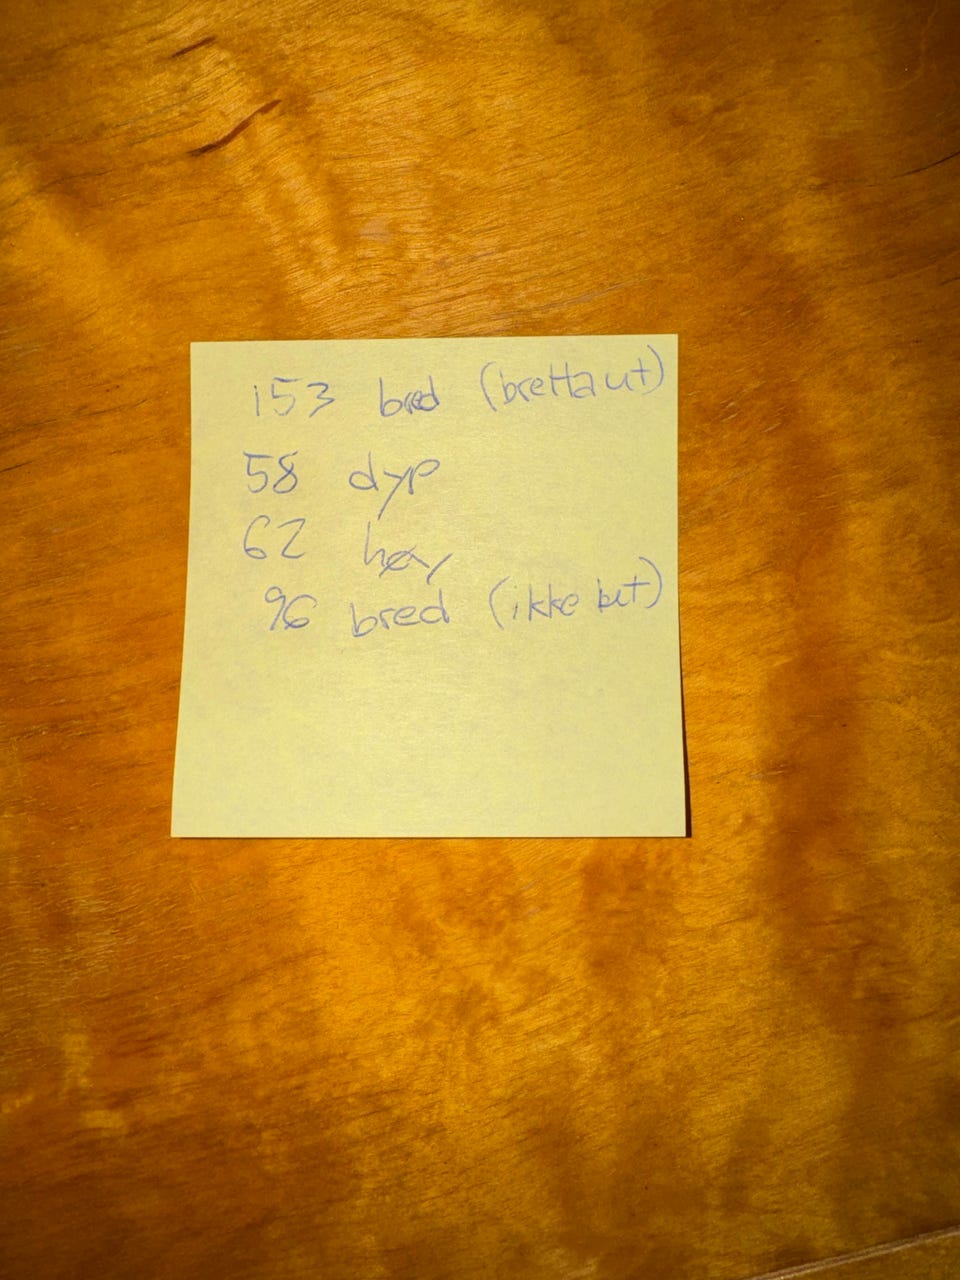 153 bred (bretta ut)
58 dyp
62 høy
96 bred (ikke but)